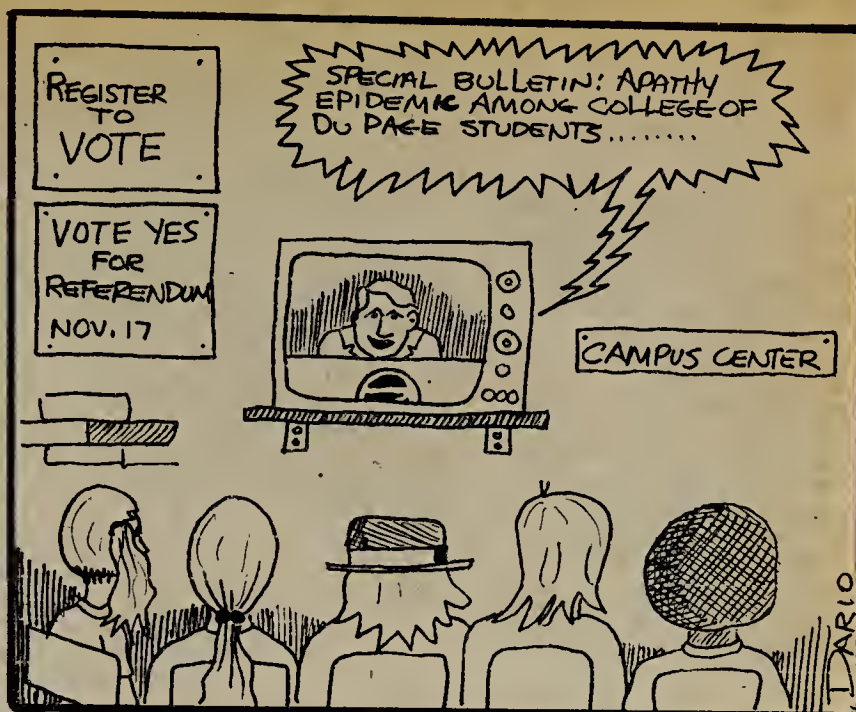 REGISTER
TO
VOTE
VOTE YES
FOR
REFERENDUM
NOV. 17
SPECIAL BULLETIN: APATHY
EPIDEMIC AMONG COLLEGE OF
DU PAGE STUDENTS........
CAMPUS CENTER
DARIO